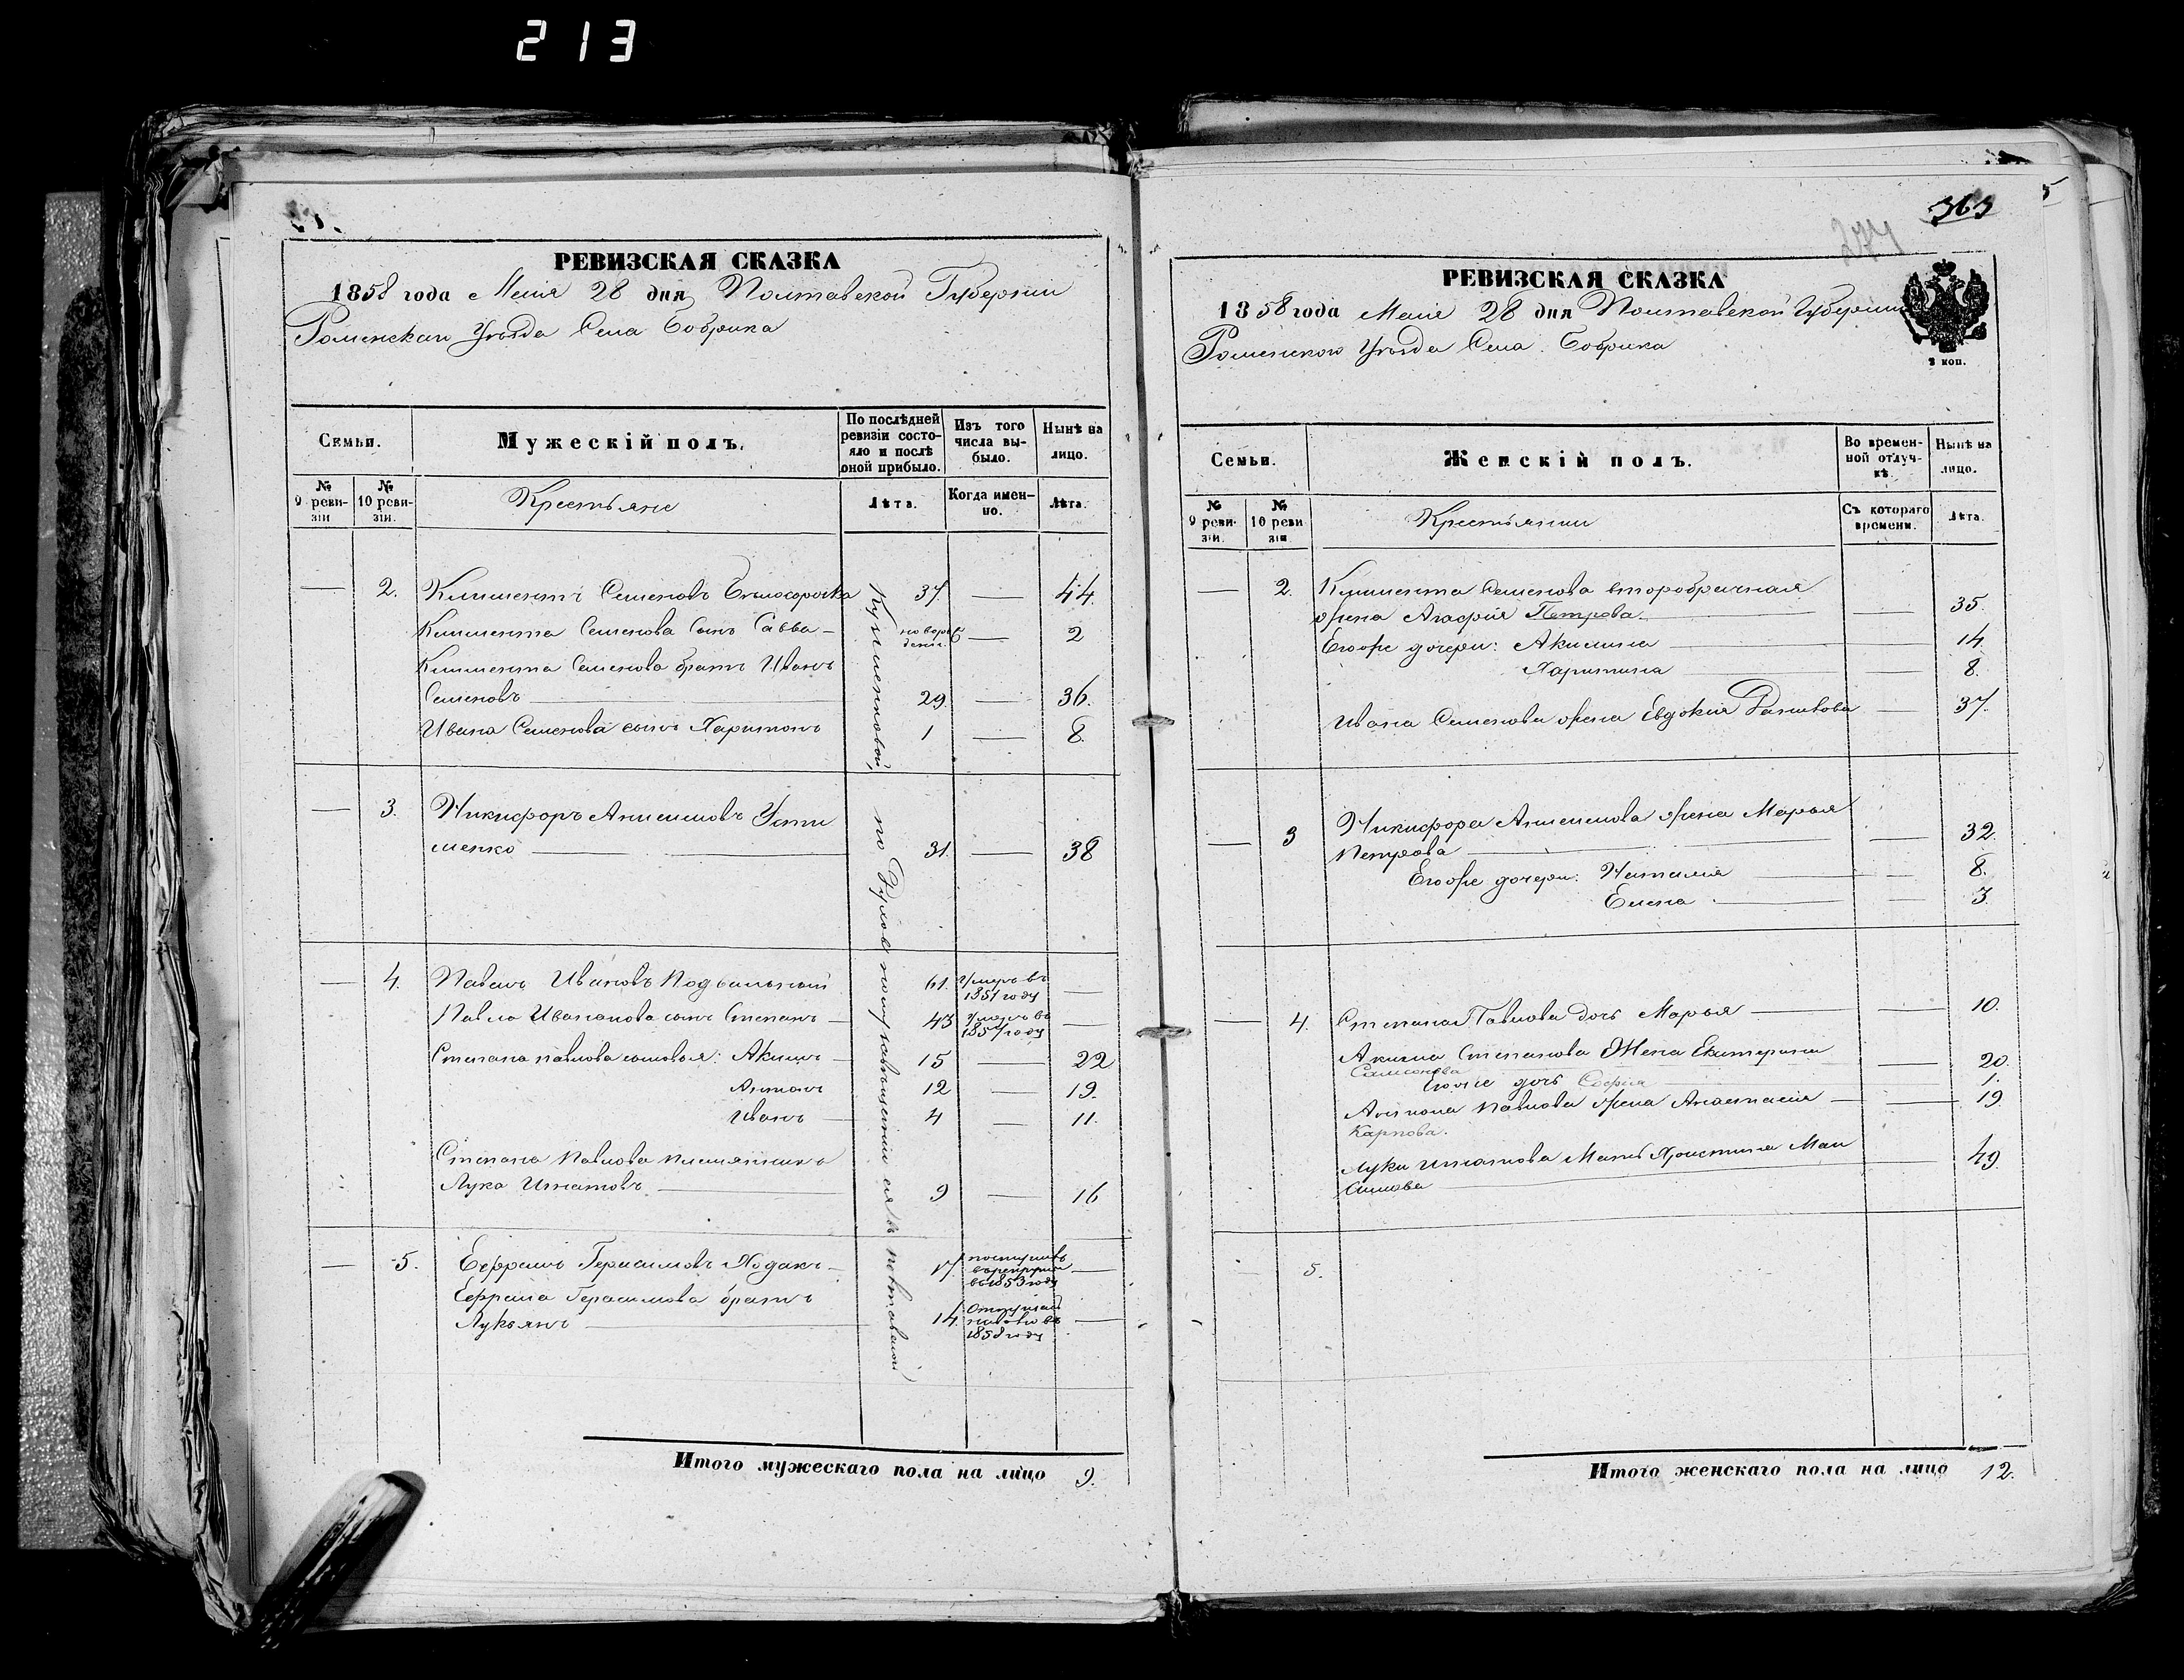 213
РЕВИЗСКАЯ СКАЗКА
1858 года Маія 28 дня Полтавской Губерніи
Роменскаго Уѣзда Села Бобрика
Семьи.
Мужескій полъ.
По послѣдней ревизіи состояло и послѣ оной прибыло.
Изъ того числа выбыло.
Нынѣ на лицо.
№ 9 ревизіи
№ 10 ревизіи.
Крестьяне
Лѣта.
Когда именно.
Лѣта.
— 2. Климентъ Семеновъ Бѣлосорочка 37 — 44.
Климента Семенова сынъ Савва — новорожденъ — 2
Климента Семенова братъ Иванъ
Семеновъ — 29 — 36.
Ивана Семенова сынъ Харитонъ 1 — 8.
— 3. Никифоръ Анисимовъ Усти
менко — 31. — 38
— 4. Павелъ Ивановъ Подвальный 61. Умеръ въ 1851 году —
Павла Иванова сынъ Степанъ — 43 Умеръ въ 1857 году —
Степана Павлова сыновья: Акимъ — 15 — 22
Антонъ 12 — 19.
Иванъ — 4 — 11.
Степана Павлова племянникъ
Лука Игнатовъ — 9 — 16
— 5. Ефремъ Герасимовъ Ходакъ — 17. поступилъ въ рекруты въ 1853 году —
Ефрема Герасимова братъ
Лукьянъ — 14. Отпущенъ на волю въ 1858 году —
Итого мужескаго пола на лицо 9.
363
274
РЕВИЗСКАЯ СКАЗКА
1858 года Маія 28 дня Полтавской Губерніи
Роменскаго Уѣзда Села Бобрика
3 коп.
Семьи.
Женскій полъ.
Во временной отлучкѣ
Нынѣ на лицо.
№ 9 ревизіи.
№ 10 ревизіи
Крестьянки
Съ котораго времени.
Лѣта.
— 2. Климента Семенова второбрачная
жена Агафія Петрова. — — 35.
Егоже дочери: Акилина — — 14.
Харитина — — 8.
Ивана Семенова жена Евдокія — 37.
— 3 Никифора Анисимова жена Марья
Петрова — — 32.
Егоже дочери: Наталія — — 8.
Елена — — 3.
— 4. Степана Павлова дочь Марья — — 10.
Акима Степанова Жена Екатерина
Самсонова — 20.
Егоже дочь Софія — 1.
Антона Павлова жена Анастасія — — 19
Карпова.
Луки Игнатова Мать Христина Мак
симова — 49.
— 5.
Итого женскаго пола на лицо 12.